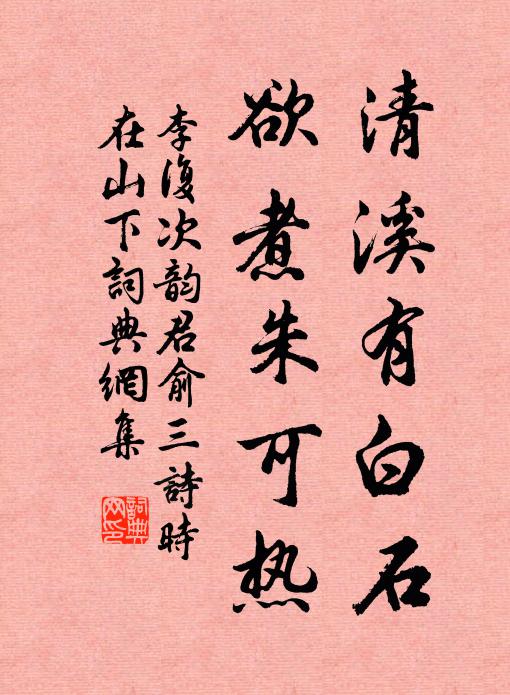 清溪有白石
欲煮朱可热
李復次韵君俞三詩時
在山下詞典網集
詞典网印